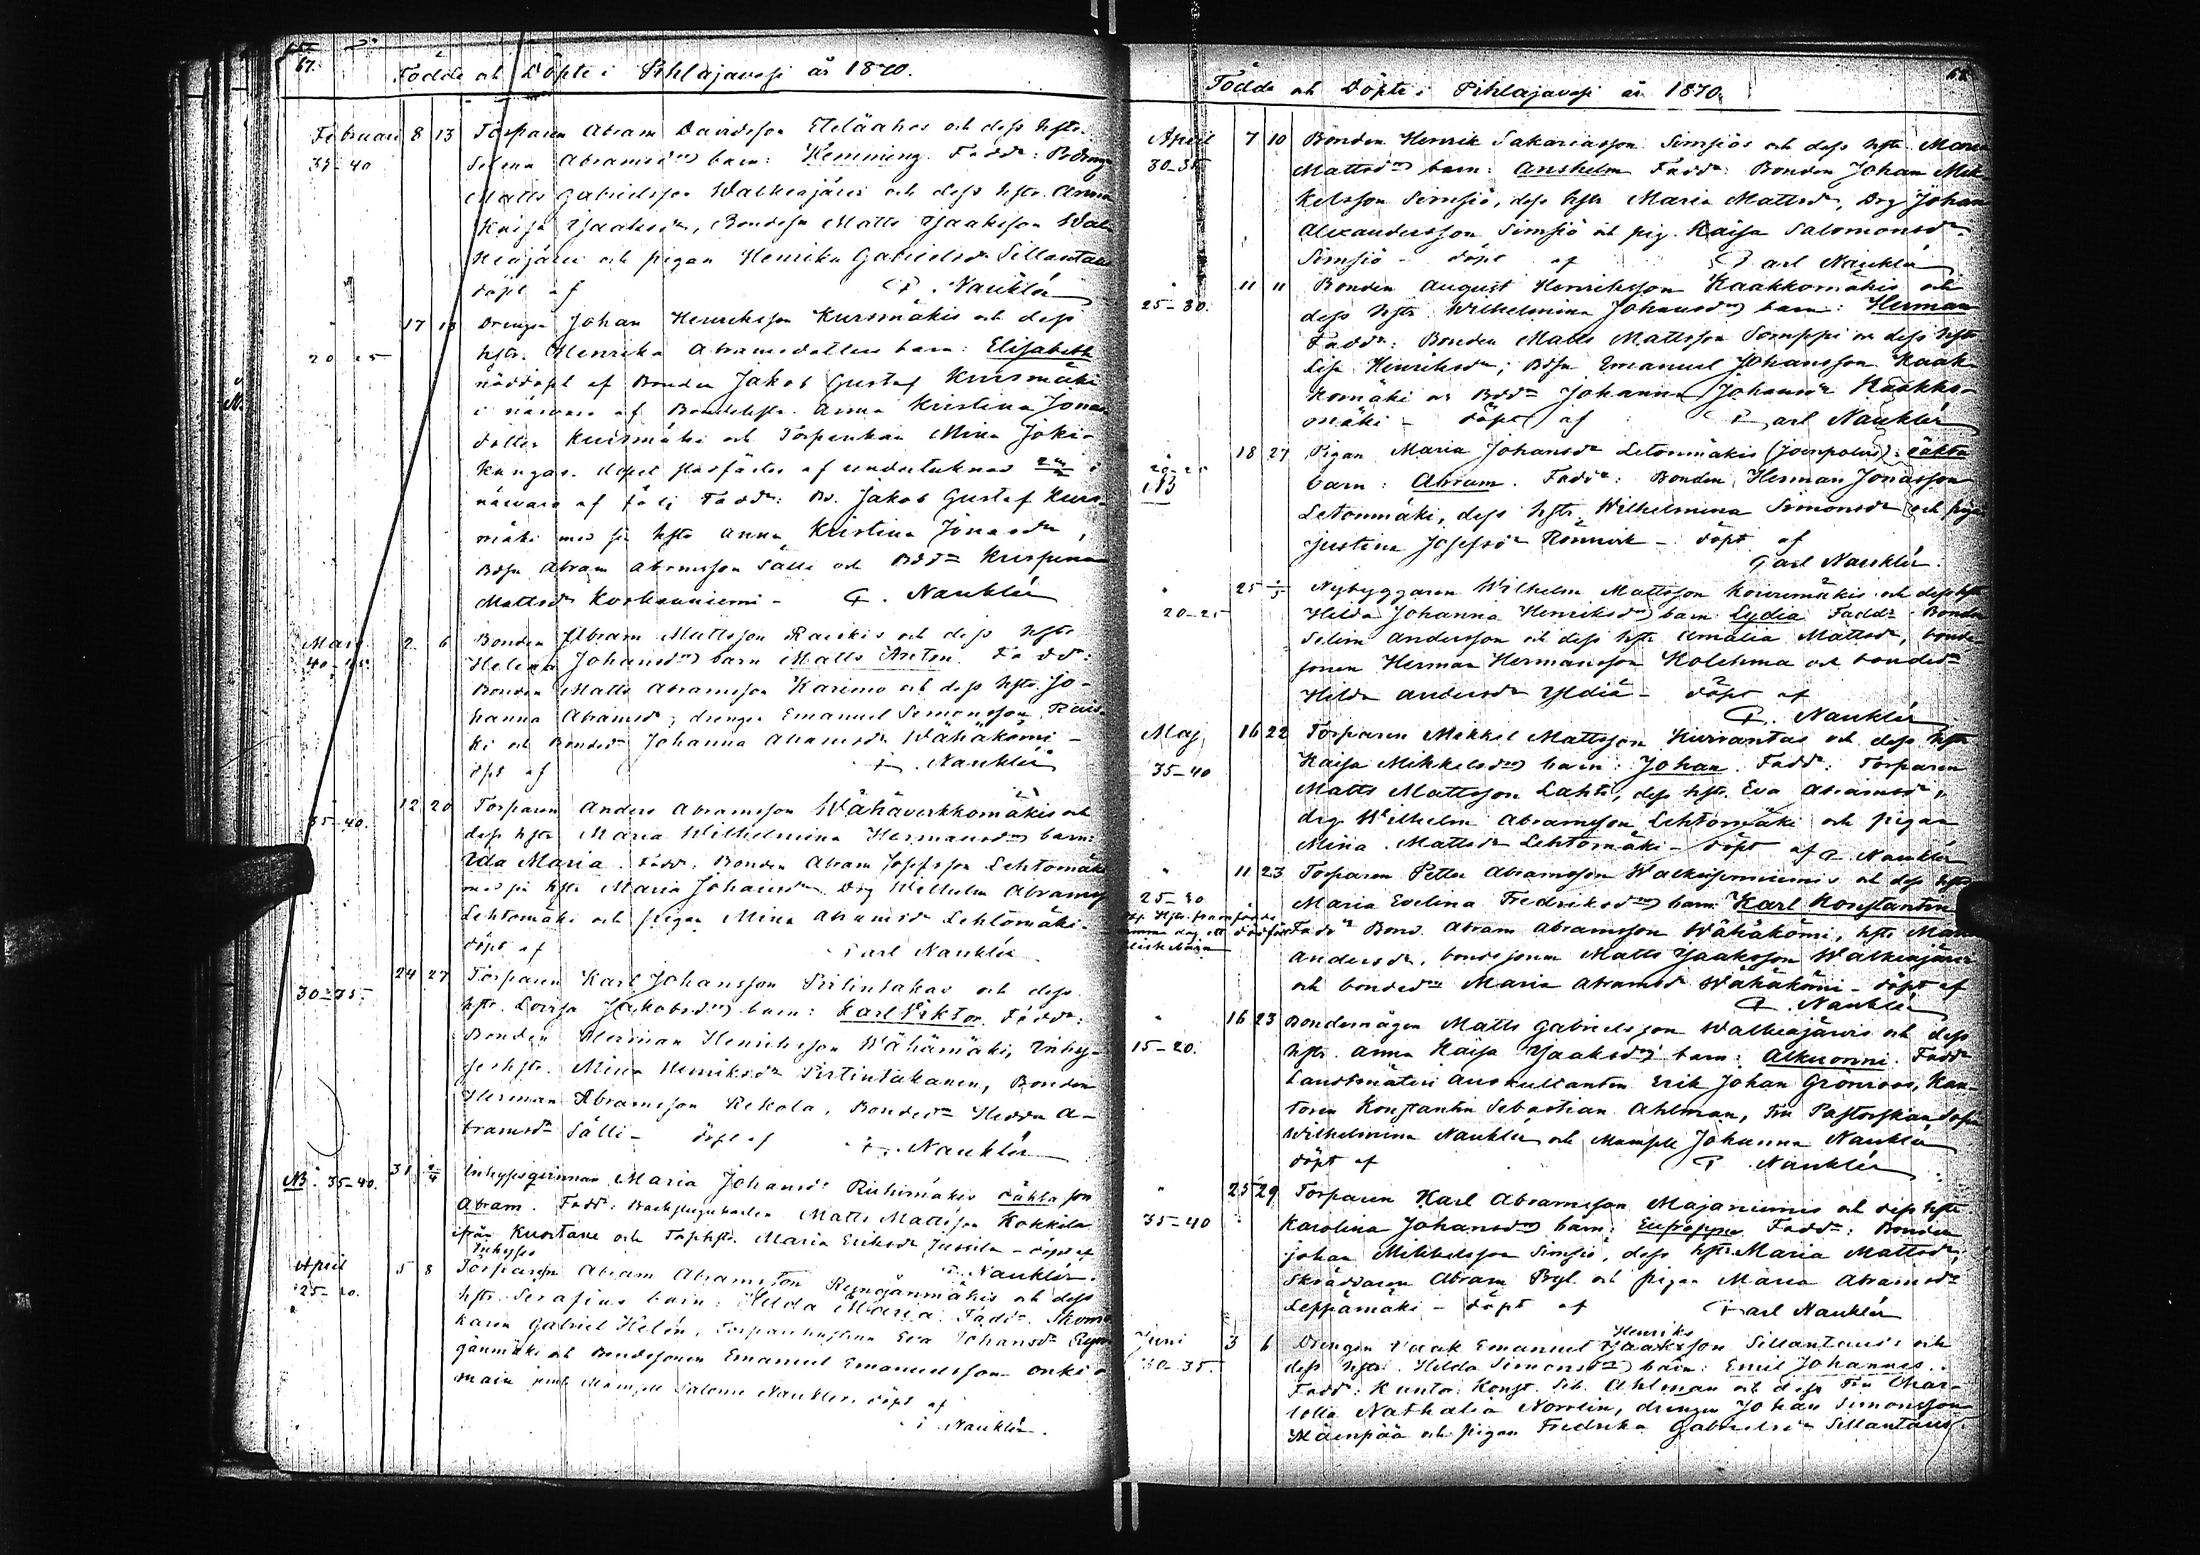 67.
Födde och Döpte i Pihlajavesi år 1870.
Februari 8 13 Torparen Abram Davidsson Eteläahos och dess hstr.
35-40 Selena Abramsdrs barn: Hemming. Fadd:
Matts Gabrielsson Walkeajärvi och dess hstr. Anna
Kaisa Isaaksdr, Bondeson Matts Isaaksson Wal-
keajärvi och pigan Henrika Gabrielsdr Sillantaus
döpt af F. Nauklér
17 18 Drengen Johan Henriksson Kursmäkis och dess
20-25 hstr. Henrika Abramsdotters barn: Elisabeth
nöddöpt af Bonden Jakob Gustaf Kursmäki
i närvaro af Bondehstr. Anna Kristina Jonas
dotter Kursmäki och Torpenkan Mina Joki-
kangas. dopet stadfästes af undertecknad i
närvaro af följ. Fadd: Bd. Jakob Gustaf Kurs-
mäki med sin hstr Anna Kristina Jonasdr,
Bdsn Abram Abramsson Sälli och Bdd Krispina
Mattsdr Koskenniemi - F. Nauklér
Mars 2 6 Bonden Abram Mattsson Raiskis och dess hstr
40-45 Helena Johansdrs barn Matts Anton. Fadd:
Bonden Matts Abramsson Karimo och dess hstr. Jo-
hanna Abramsdr, drengen Emanuel Simonsson Rais-
ki och Bondedr Johanna Abramsdr Wähäkömi -
döpt af F. Nauklér
12 20 Torparen Anders Abramsson Wähäverkkomäkis och
35-40. dess hstr Maria Wilhelmina Hermansdrs barn:
Ida Maria. Fadd. Bonden Abram Josefsson Lehtomäki
med sin hstr Maria Johansdr Drg Wilhelm Abramss
Lehtomäki och pigan Mina Abramsdr Lehtomäki.
döpt af Carl Nauklér
24 27 Torparen Karl Johansson Pirtintakas och dess
30-35. hstr. Lovisa Jakobsdrs barn: Karl Viktor. Fadd:
Bonden Herman Henriksson Wähämäki, Inhy-
seshstr. Mina Henriksdr Pirtintakanen, Bonden
Herman Abramsson Kekola, Bondedr Hedda A-
bramsdr Sälli - döpt af F. Nauklér
NB. 35-40. 31 2/4 Inhysesqvinnan Maria Johansdr Riihimäkis oäkta son
Abram. Fadd: Backstugukarlen Matts Mattsson Kokkila
ifrån Kuortane och Torphstr. Maria Eriksdr Jussila - döpt af
Inhyses F. Nauklér.
April 5 8 Torparen Abram Abramsson Rengänmäkis och dess
25-30. hstr. Serafias barn: Hilda Maria. Fadd: Skoma-
karen Gabriel Helén, Torparehustrun Eva Johansdr Ren-
gänmäki och Bondesonen Emanuel Emanuelsson Onkio-
main samt Mamsell Salome Nauklér, döpt af
F. Nauklér.
68.
Födde och Döpte i Pihlajavesi år 1870.
April 7 10 Bonden Henrik Sakariasson Simsiös och dess hstr. Maria
30-35 Mattsdrs barn: Anshelm Fadd: Bonden Johan Mik-
kelsson Simsiö, dess hstr Maria Mattsdr, Drg Johan
Alexandersson Simsiö och pig. Kaisa Salomonsdr
Simsiö - döpt af Carl Nauklér
" 11 11 Bonden August Henriksson Kaakkomäkis och
25-30. dess hstr Wilhelmina Johansdrs barn: Herman
Fadd: Bonden Matts Mattsson Somppi och dess hstr
Lisa Henriksdr, Bdsn Emanuel Johansson Kaak-
komäki och Bdd Johanna Johansdr Kaakko-
mäki - döpt af Carl Nauklér
" 18 27 Pigan Maria Johansdr Letonmäkis (Joenpolvi) oäkta
20-25 barn: Abram. Fadd: Bonden Herman Jonasson
Letonmäki, dess hstr Wilhelmina Simonsdr och pigan
Justina Josefsdr Rönnvik - döpt af
Carl Nauklér.
" 25 1/5 Nybyggaren Wilhelm Mattsson Koivumäkis och dess hstr
20-25 Hilda Johanna Henriksdrs barn Lydia Fadd: Bonden
Selim Andersson och dess hstr Amalia Mattsdr, bonde-
sonen Herman Hermansson Kolehma och bondedr
Hilda Andersdr Yldiä - döpt af
F. Nauklér
Maj 16 22 Torparen Mikkel Mattsson Kurvantas och dess hstr
35-40 Kaisa Mikkelsdrs barn: Johan. Fadd: Torparen
Matts Mattsson Lahti, dess hstr. Eva Abramsdr,
drg Wilhelm Abramsson Lehtomäki och pigan
Mina Mattsdr Lehtomäki - döpt af F. Nauklér
" 11 23 Torparen Petter Abramsson Walkeisenniemis och dess hstr
25-30 Maria Evelina Fredriksdrs barn: Karl Konstantin
Fadd: Bond. Abram Abramsson Wähäkömi, hstr Maria
Andersdr, bondesonen Matts Isaaksson Walkeajärvi
och bondedr Maria Abramsdr Wähäkömi - döpt af
F. Nauklér
" 16 23 Bondemågen Matts Gabrielsson Walkeajärvis och dess
15-20. hstr. Anna Kaisa Isaaksdrs barn: Alkuorini. Fadd:
Landtmäteri Auskultanten Erik Johan Grönroos, Kan-
toren Konstantin Sebastian Ahlman, Fru Pastorskan Sofia
Wilhelmina Nauklér och Mamsell Johanna Nauklér
döpt af F. Nauklér
" 25 29 Torparen Karl Abramsson Majaniemis och dess hstr
35-40 Karolina Johansdrs barn: Eufrosyne Fadd: Bonden
Johan Mikkelsson Simsiö, dess hstr Maria Mattsdr,
Skräddaren Abram Ryl och pigan Maria Abramsdr
Leppämäki - döpt af Carl Nauklér
Henriks
Juni 3 6 Drengen Isaak Emanuel Isaaksson Sillantaus's och
30-35. dess hstr. Hilda Simonsdrs barn: Emil Johannes.
Fadd: Kantor Konst. Seb. Ahlman och dess Fru Char-
lotta Nathalia Norrlin, drengen Johan Simonsson
Mäenpää och pigan Fredrika Gabrielsdr Sillantaus.